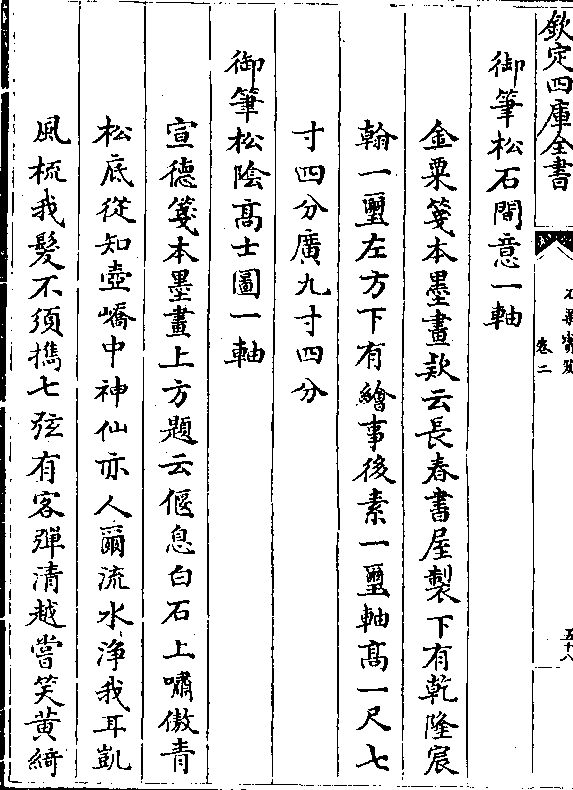 欽定四庫全書
石渠寶笈
卷二
五十八
御筆松石間意一軸
金粟箋本墨畫款云長春書屋製下有乾隆宸
翰一璽左方下有繪事後素一璽軸髙一尺七
寸四分廣九寸四分
御筆松隂髙士圖一軸
宣德箋本墨畫上方題云偃息白石上嘯傲青
松底從知壺嶠中神仙亦人爾流水浄我耳凱
風梳我髮不須攜七弦有客彈清越嘗笑黄綺